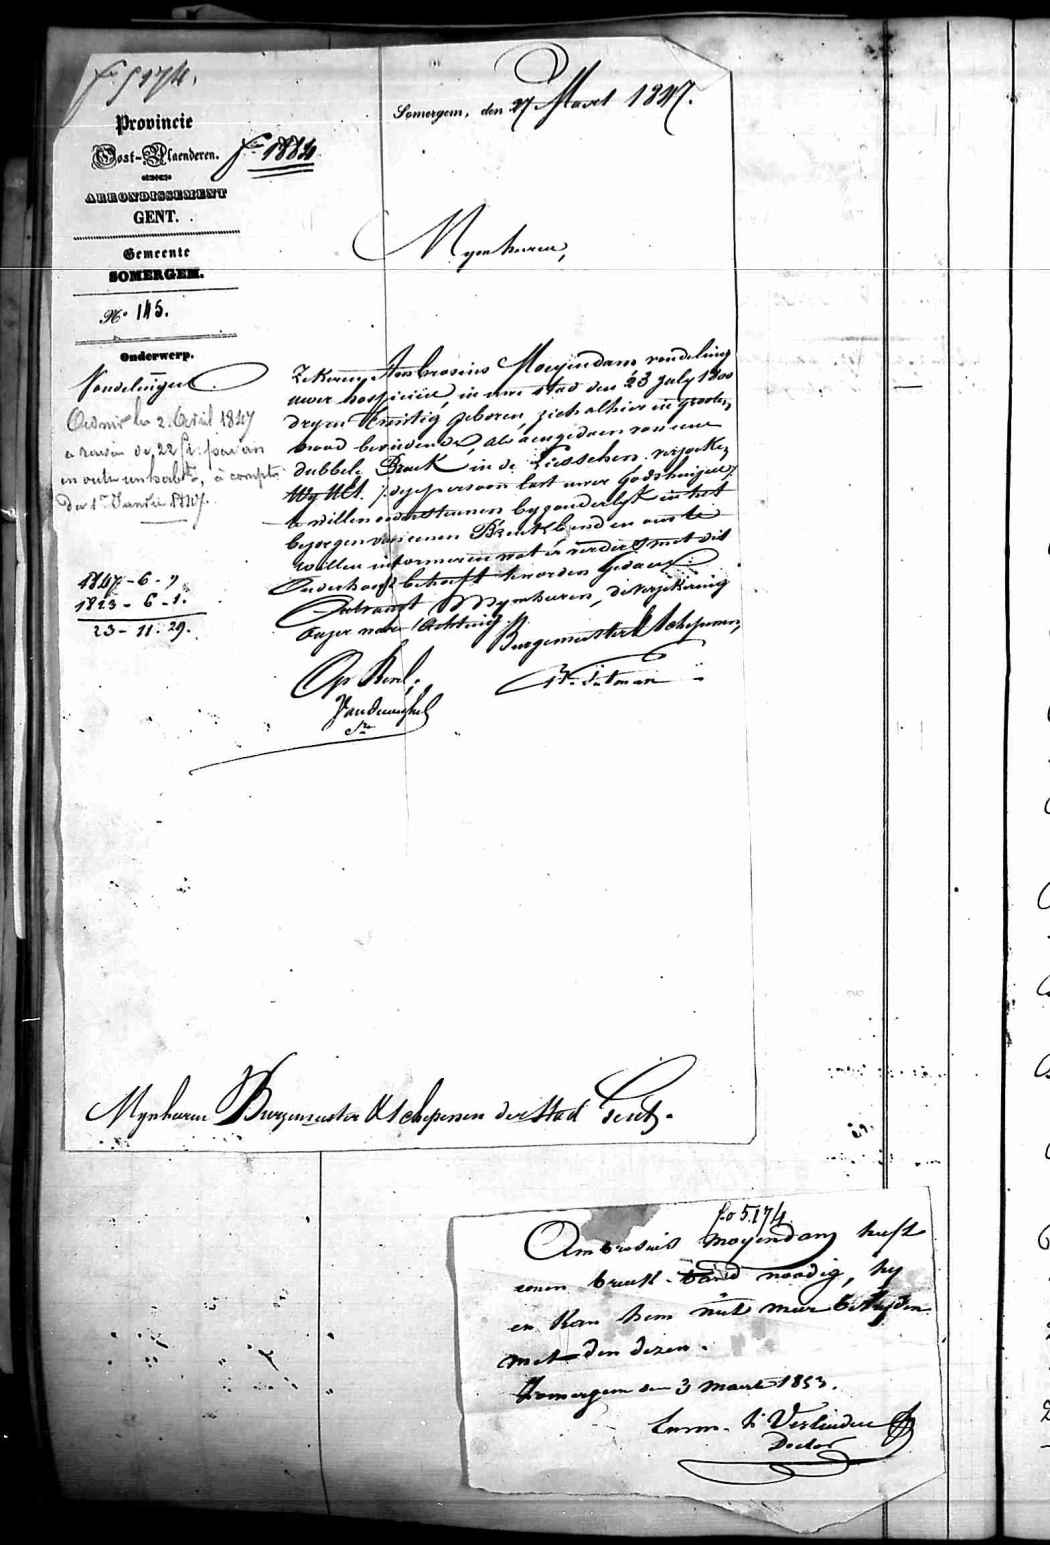 fo 5174.
Provincie
Oost-Vlaenderen.
fo 1884
ARRONDISSEMENT
GENT.
Gemeente
SOMERGEM.
No 145.
Onderwerp.
Vondelingen
Somergem, den 27 Maert 1847.
Mynheeren,
Ambrosius Moeyendam, vondeling
uwer hospiciën, in uwe stad den 23 july 1800
dryen twintig geboren, zich alhier in grooten
nood bevindende, als aengedaen van eene
dubbele Breuk in de Liesschen, verzoeken
Wy UEd. dezen persoon last uwer Godshuizen,
te willen ondersteunen byzonderlyk in het
bezorgen van eenen Breukband en ons te
willen informeren wat er verders met dit
Onderhoof behoeft te worden gedaen.
Ontvangt Mynheeren, de verzekering
onzer ware Achting.
Burgemeester & Schepenen,
Op Bevel,
admis le 2 Avril 1847
a raison de 22 fr. par an
en outre un habit, à compter
du 1er Janvier 1847.
1847-6-
1823-6-1.
23-11-29.
Mynheeren Burgemeester & Schepenen der Stad Gent.
fo 5174
Ambrosius Moyendam heeft
eenen breuk-band noodig, hy
en kan hem niet meer behelpen
met den dezen.
Somergem den 3 maert 1853.
Verlinden
Doctor